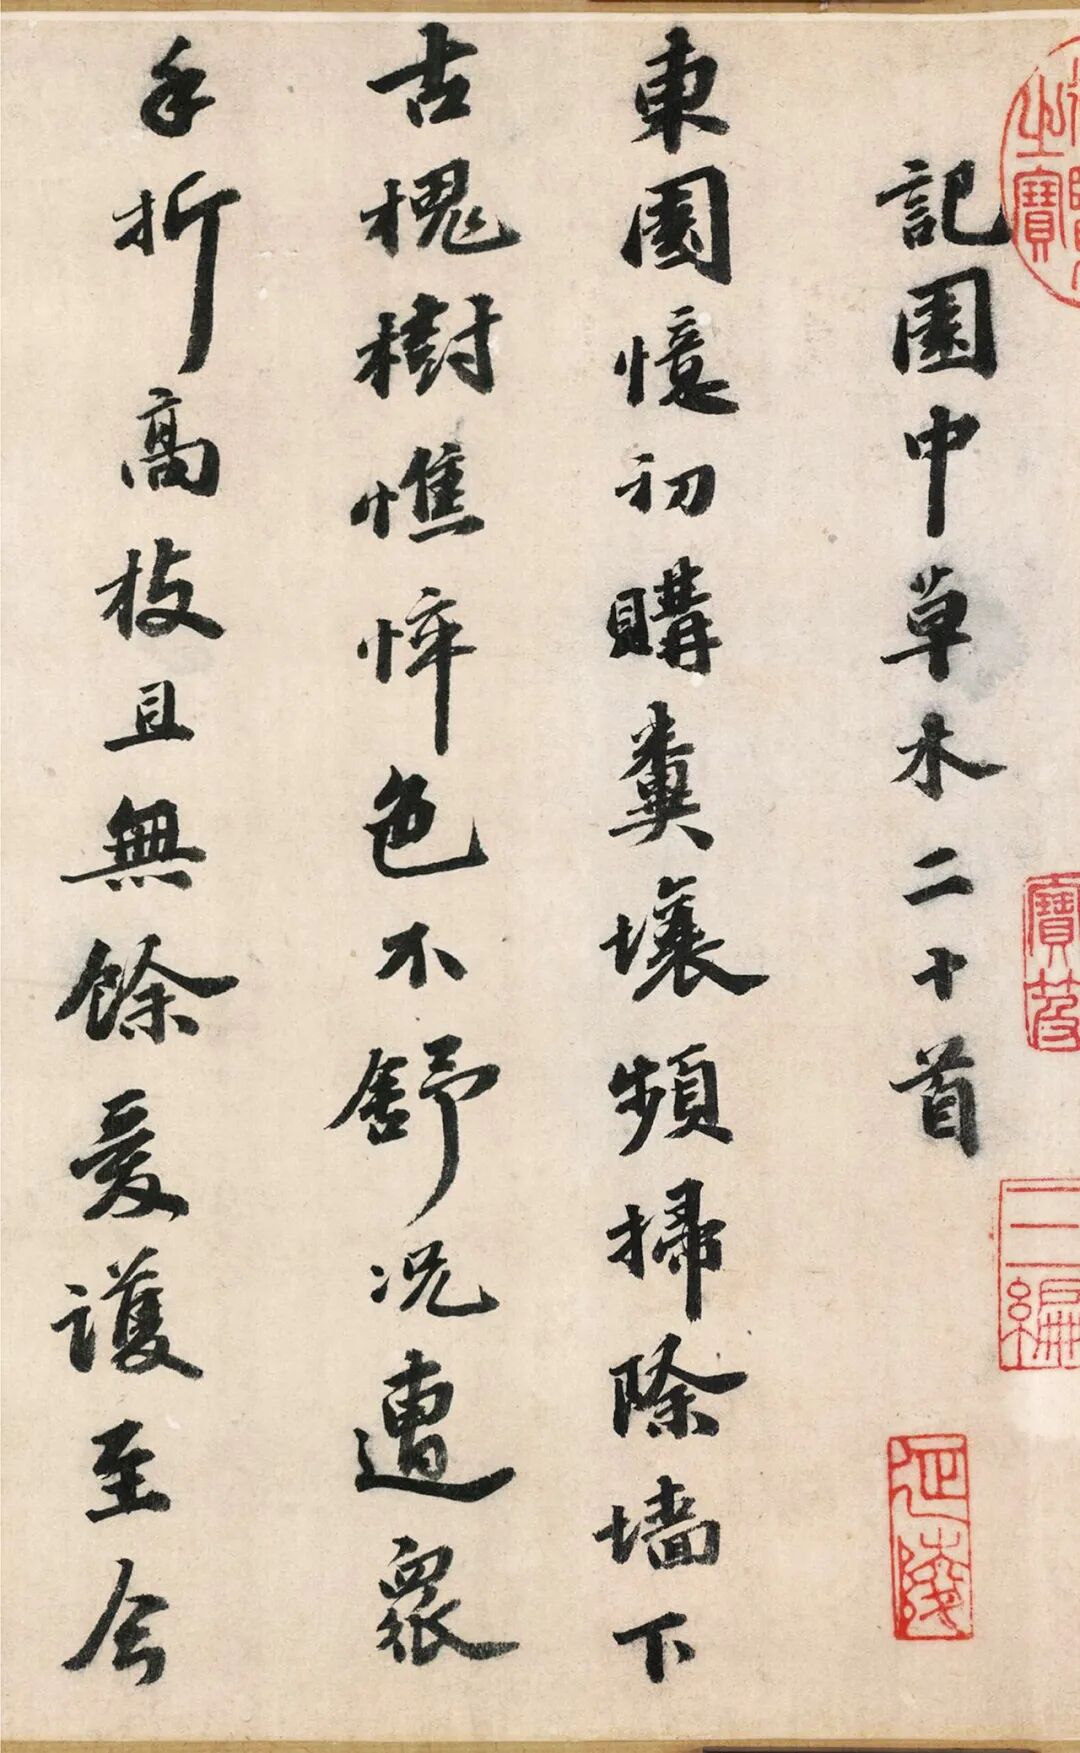 記園中草木二十首
東園憶初購糞壤頻掃除墻下
古槐樹憔悴色不舒况遭衆
手折高枝且無餘愛護至今
之寶
寶笈
三編
延陵